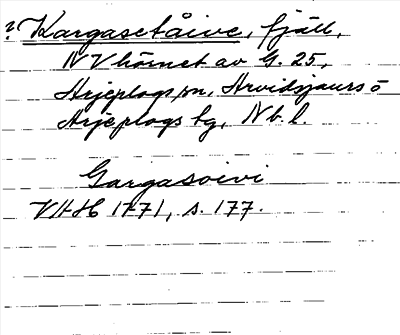 ? Kargasetåive, fjäll,
NV hörnet av G. 25,
Arjeplogs sn, Arvidsjaurs o
Arjeplogs tg, Nb. l.
Gargasoivi
VHH 1771, s. 177.